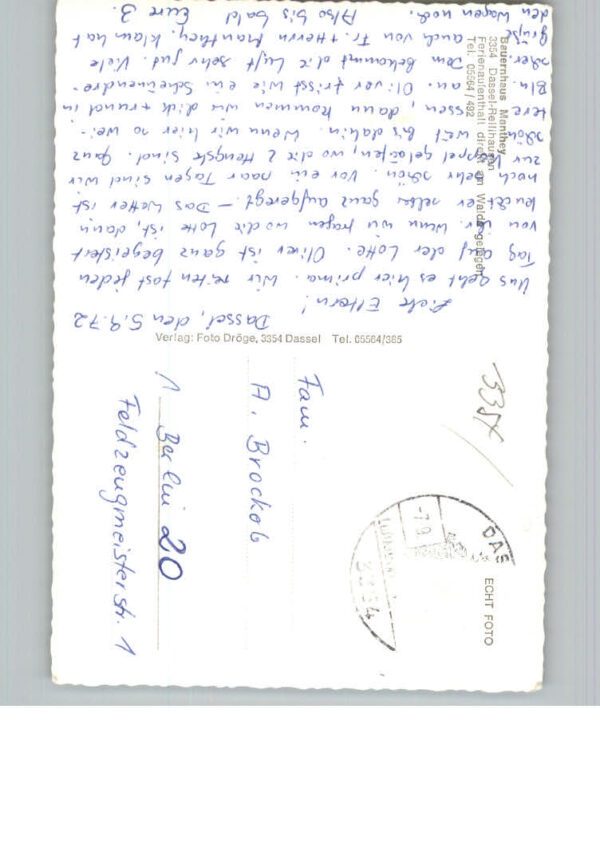 Bauernhaus Manthey
3354 Dassel-Relliehausen
Ferienaufenthalt direkt am Waldrand gelegen
Tel. 05564/492
Dassel, den 5.9.72
Liebe Eltern!
Uns geht es hier prima. Wir reiten fast jeden
Tag auf der Lotte. Oliver ist ganz begeistert
von ihr. Wenn wir fragen wo die Lotte ist, dann
kuckt er selber ganz aufgeregt. – Das Wetter ist
noch sehr schön. Vor ein paar Tagen sind wir
zur Koppel gelaufen, wo die 2 Hengste sind. Ganz
schön weit bis dahin. Wenn wir hier so wei-
tere essen, dann kommen wir dick + rund in
Bln. an. Oliver frisst wie ein Scheunendre-
scher. Dem bekommt die Luft sehr gut. Viele
Grüße auch von Fr. + Herrn Manthey, Klaus hat
den Wagen noch. Also bis bald Eure 3.
Verlag: Foto Dröge, 3354 Dassel Tel. 05564/385
3354
DAS
-7.9.
3354
ECHT FOTO
Fam.
A. Brockob
1 Berlin 20
Feldzeugmeisterstr. 1